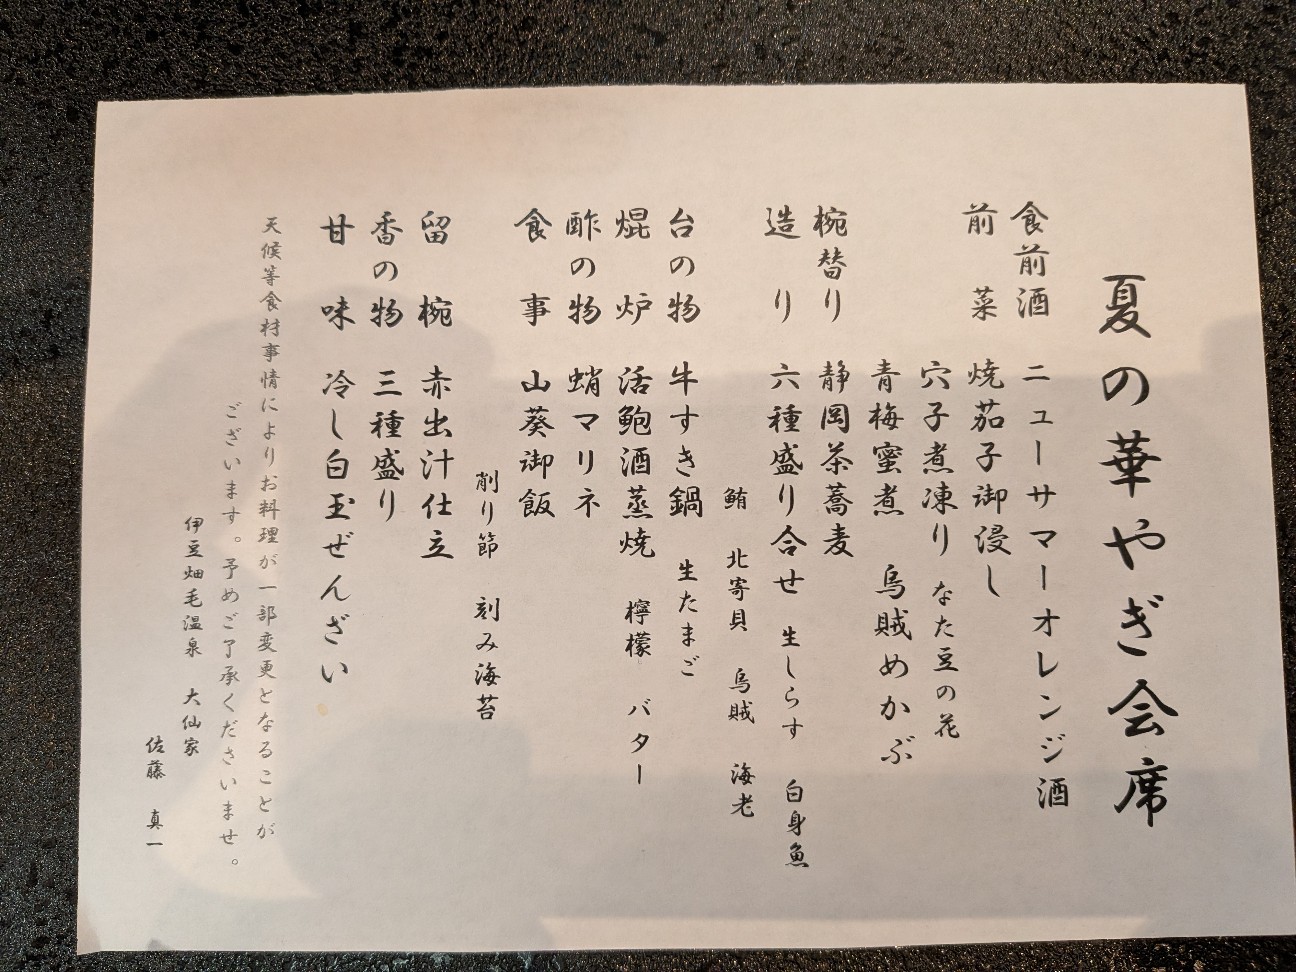 夏の華やぎ会席
食前酒　ニューサマーオレンジ酒
前菜　焼茄子御浸し
穴子煮凍り　なた豆の花
青梅蜜煮　烏賊めかぶ
椀替り　静岡茶蕎麦
造り　六種盛り合せ　生しらす　白身魚
鮪　北寄貝　烏賊　海老
台の物　牛すき鍋　生たまご
焜炉　活鮑酒蒸焼　檸檬　バター
酢の物　蛸マリネ
食事　山葵御飯
削り節　刻み海苔
留椀　赤出汁仕立
香の物　三種盛り
甘味　冷し白玉ぜんざい
天候等食材事情によりお料理が一部変更となることが
ございます。予めご了承くださいませ。
伊豆畑毛温泉　大仙家
佐藤　真一